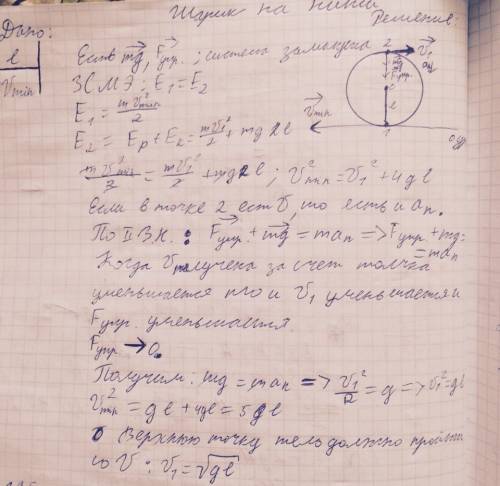 Шарик на нити
Дано:
l
Vmin
Решение:
Есть mg, Fупр.; система замкнута
ЗСМЭ: E₁ = E₂
E₁ = mVmin²/2
E₂ = Eр + E₂ = mV₁²/2 + mg2l
mVmin²/2 = mV₁²/2 + mg2l; V²min = V₁² + 4gl
Если в точке 2 есть V, то есть и aп.
По II З.Н.: Fупр. + mg = maп => Fупр + mg =
= maп
Когда V получена за счет толчка
уменьшается то и V₁ уменьшается и
Fупр. уменьшается.
Fупр → 0.
Получим: mg = maп => V₁²/R = g => V₁² = gl
V²min = gl + 4gl = 5gl
Верхнюю точку тело должно пройти
со V: V₁ = √gl
2
V₁
Fупр.
l
Vmin
1